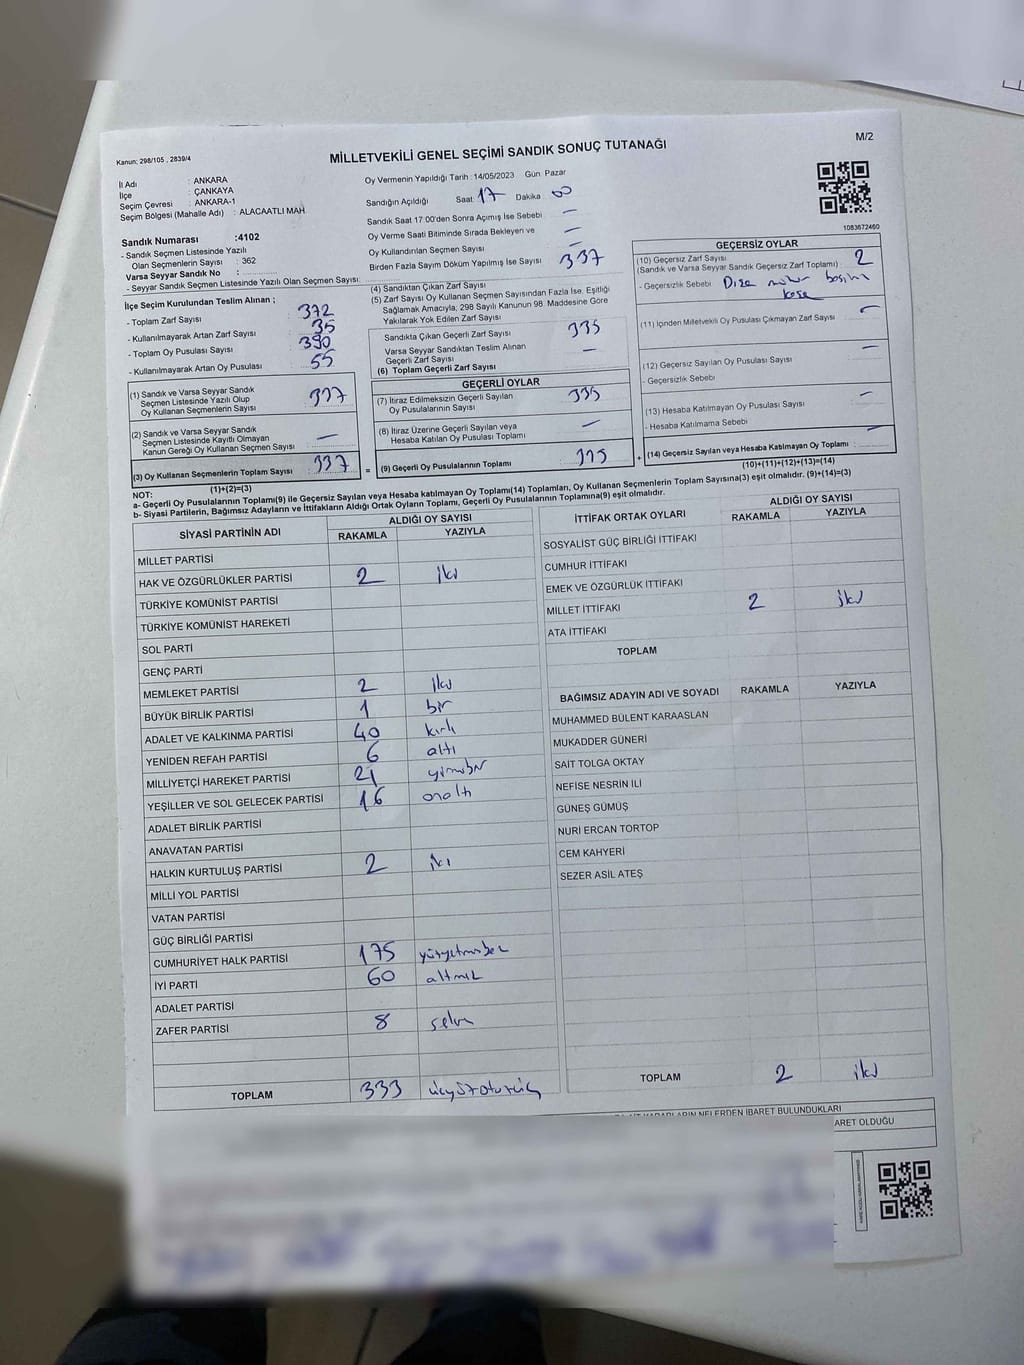 M/2
Kanun: 298/105 , 2839/4
MİLLETVEKİLİ GENEL SEÇİMİ SANDIK SONUÇ TUTANAĞI
İl Adı : ANKARA
İlçe : ÇANKAYA
Seçim Çevresi : ANKARA-1
Seçim Bölgesi (Mahalle Adı) : ALACAATLI MAH.
Sandık Numarası :4102
- Sandık Seçmen Listesinde Yazılı
Olan Seçmenlerin Sayısı : 362
Varsa Seyyar Sandık No :
- Seyyar Sandık Seçmen Listesinde Yazılı Olan Seçmen Sayısı:
İlçe Seçim Kurulundan Teslim Alınan ;
- Toplam Zarf Sayısı : 372
- Kullanılmayarak Artan Zarf Sayısı : 35
- Toplam Oy Pusulası Sayısı : 390
- Kullanılmayarak Artan Oy Pusulası : 55
(1) Sandık ve Varsa Seyyar Sandık
Seçmen Listesinde Yazılı Olup
Oy Kullanan Seçmenlerin Sayısı : 337
(2) Sandık ve Varsa Seyyar Sandık
Seçmen Listesinde Kayıtlı Olmayan
Kanun Gereği Oy Kullanan Seçmen Sayısı : —
(3) Oy Kullanan Seçmenlerin Toplam Sayısı : 337
(1)+(2)=(3)
Oy Vermenin Yapıldığı Tarih :14/05/2023 Gün: Pazar
Sandığın Açıldığı Saat 17 Dakika 00
Sandık Saat 17:00'den Sonra Açımış İse Sebebi —
Oy Verme Saati Bitiminde Sırada Bekleyen ve —
Oy Kullandırılan Seçmen Sayısı —
Birden Fazla Sayım Döküm Yapılmış İse Sayısı
(4) Sandıktan Çıkan Zarf Sayısı 337
(5) Zarf Sayısı Oy Kullanan Seçmen Sayısından Fazla İse, Eşitliği
Sağlamak Amacıyla; 298 Sayılı Kanunun 98. Maddesine Göre
Yakılarak Yok Edilen Zarf Sayısı
Sandıkta Çıkan Geçerli Zarf Sayısı 335
Varsa Seyyar Sandıktan Teslim Alınan
Geçerli Zarf Sayısı —
(6) Toplam Geçerli Zarf Sayısı
GEÇERLİ OYLAR
(7) İtiraz Edilmeksizin Geçerli Sayılan
Oy Pusulalarının Sayısı 335
(8) İtiraz Üzerine Geçerli Sayılan veya
Hesaba Katılan Oy Pusulası Toplamı —
= (9) Geçerli Oy Pusulalarının Toplamı 335
1083672460
GEÇERSİZ OYLAR
(10) Geçersiz Zarf Sayısı
(Sandık ve Varsa Seyyar Sandık Geçersiz Zarf Toplamı) : 2
- Geçersizlik Sebebi
(11) İçinden Milletvekili Oy Pusulası Çıkmayan Zarf Sayısı —
(12) Geçersiz Sayılan Oy Pusulası Sayısı —
- Geçersizlik Sebebi
(13) Hesaba Katılmayan Oy Pusulası Sayısı —
- Hesaba Katılmama Sebebi
+ (14) Geçersiz Sayılan veya Hesaba Katılmayan Oy Toplamı : —
(10)+(11)+(12)+(13)=(14)
NOT:
a- Geçerli Oy Pusulalarının Toplamı(9) ile Geçersiz Sayılan veya Hesaba katılmayan Oy Toplamı(14) Toplamları, Oy Kullanan Seçmenlerin Toplam Sayısına(3) eşit olmalıdır. (9)+(14)=(3)
b- Siyasi Partilerin, Bağımsız Adayların ve İttifakların Aldığı Ortak Oyların Toplamı, Geçerli Oy Pusulalarının Toplamına(9) eşit olmalıdır.
SİYASİ PARTİNİN ADI ALDIĞI OY SAYISI
RAKAMLA YAZIYLA
MİLLET PARTİSİ
HAK VE ÖZGÜRLÜKLER PARTİSİ 2 iki
TÜRKİYE KOMÜNİST PARTİSİ
TÜRKİYE KOMÜNİST HAREKETİ
SOL PARTİ
GENÇ PARTİ
MEMLEKET PARTİSİ 2 iki
BÜYÜK BİRLİK PARTİSİ 1 bir
ADALET VE KALKINMA PARTİSİ 40 kırk
YENİDEN REFAH PARTİSİ 6 altı
MİLLİYETÇİ HAREKET PARTİSİ 21 yirmibir
YEŞİLLER VE SOL GELECEK PARTİSİ 16 onaltı
ADALET BİRLİK PARTİSİ
ANAVATAN PARTİSİ
HALKIN KURTULUŞ PARTİSİ 2 iki
MİLLİ YOL PARTİSİ
VATAN PARTİSİ
GÜÇ BİRLİĞİ PARTİSİ
CUMHURİYET HALK PARTİSİ 175 yüzyetmişbeş
İYİ PARTİ 60 altmış
ADALET PARTİSİ
ZAFER PARTİSİ 8 sekiz
TOPLAM 333 üçyüzotuzüç
İTTİFAK ORTAK OYLARI ALDIĞI OY SAYISI
RAKAMLA YAZIYLA
SOSYALİST GÜÇ BİRLİĞİ İTTİFAKI
CUMHUR İTTİFAKI
EMEK VE ÖZGÜRLÜK İTTİFAKI
MİLLET İTTİFAKI 2 iki
ATA İTTİFAKI
TOPLAM
BAĞIMSIZ ADAYIN ADI VE SOYADI RAKAMLA YAZIYLA
MUHAMMED BÜLENT KARAASLAN
MUKADDER GÜNERİ
SAİT TOLGA OKTAY
NEFİSE NESRİN İLİ
GÜNEŞ GÜMÜŞ
NURİ ERCAN TORTOP
CEM KAHYERİ
SEZER ASİL ATEŞ
TOPLAM 2 iki
NELERDEN İBARET BULUNDUKLARI
OLDUĞU